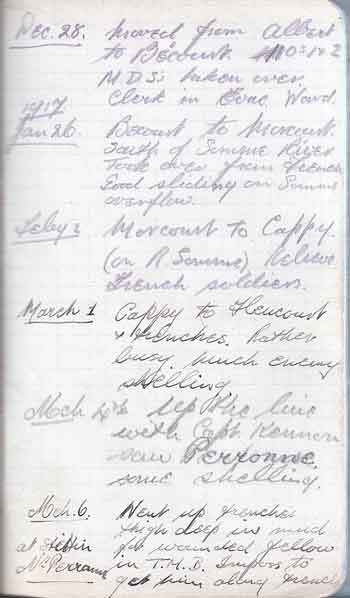 Dec. 28. Moved from Albert
to Bécourt.
M.D.S. taken over.
Clerk in Evac. Ward.
1917
Jan 26. Becourt to Morcourt.
South of Somme River
Took over from French
Good sliding on Somme
overflow.
Feby 2 Morcourt to Cappy.
(on R. Somme) Relieve
French soldiers.
March 1 Cappy to Flencourt
& trenches. Rather
busy. Much enemy
shelling
Mch 4th Up the line
with Capt. Kennon
saw Perronne.
some shelling.
Mch. 6. Went up trenches
thigh deep in mud
for wounded fellow
at in T.M.B.
Nr Perronne get him along trench